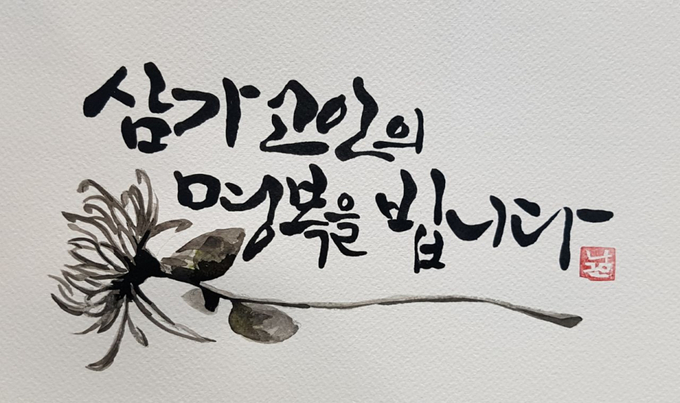 삼가 고인의
명복을 빕니다